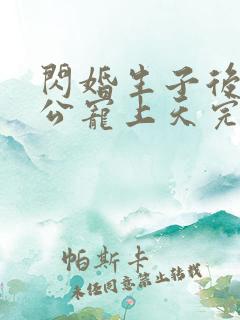 閃婚生子後
公寵上天完
帕斯卡
未经同意禁止转载